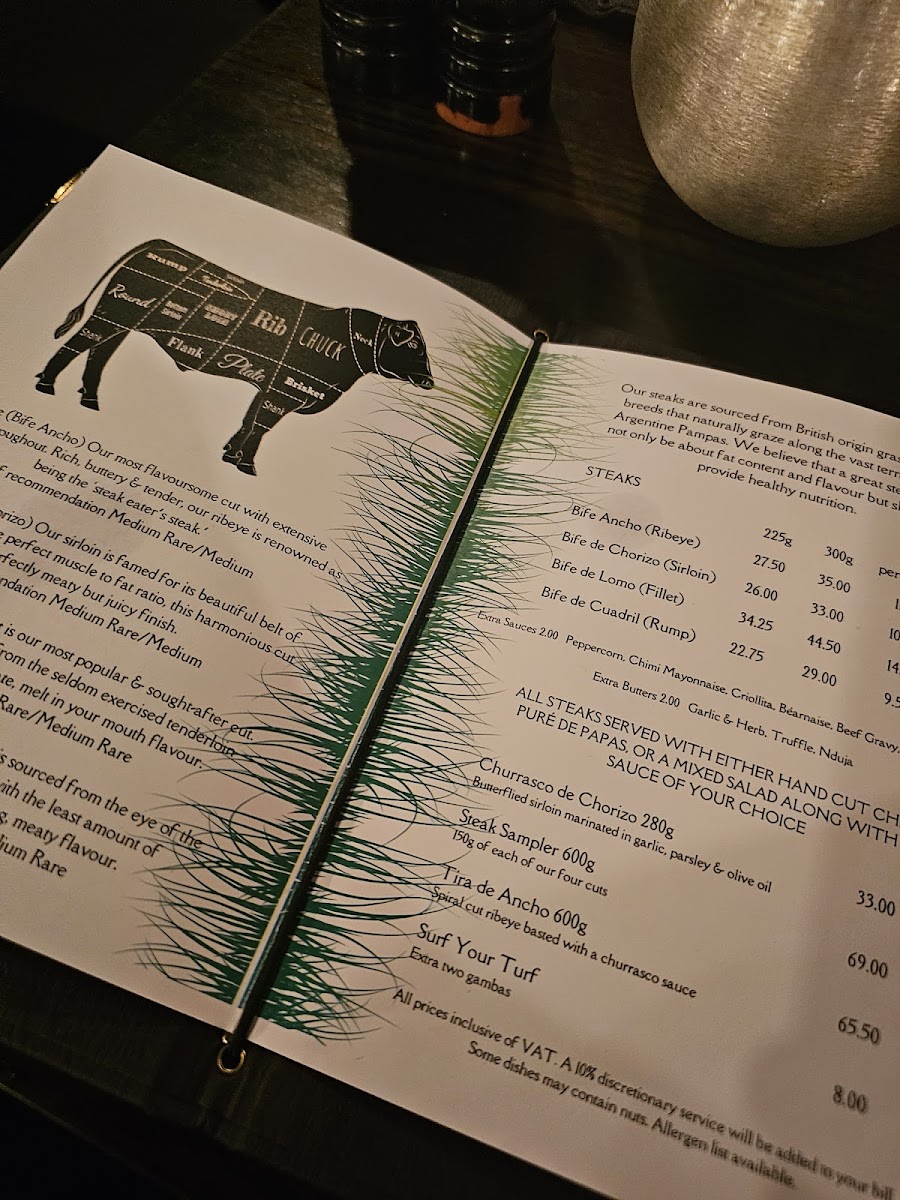 Rump
Round
Rib
CHUCK
Neck
Shank
Flank
Plate
Brisket
Shank
(Bife Ancho) Our most flavoursome cut with extensive
Rich, buttery & tender, our ribeye is renowned as
being the 'steak eater's steak.'
recommendation Medium Rare/Medium
Our sirloin is famed for its beautiful belt of
perfect muscle to fat ratio, this harmonious cut
meaty but juicy finish.
Medium Rare/Medium
is our most popular & sought-after cut.
from the seldom exercised tenderloin
melt in your mouth flavour.
Rare/Medium Rare
sourced from the eye of the
with the least amount of
meaty flavour.
Rare
Our steaks are sourced from British origin
breeds that naturally graze along the vast
Argentine Pampas. We believe that a great
not only be about fat content and flavour but
provide healthy nutrition.
STEAKS
225g 300g
Bife Ancho (Ribeye) 27.50 35.00
Bife de Chorizo (Sirloin) 26.00 33.00
Bife de Lomo (Fillet) 34.25 44.50
Bife de Cuadril (Rump) 22.75 29.00
Extra Sauces 2.00 Peppercorn, Chimi Mayonnaise, Criollita, Béarnaise, Beef Gravy,
Extra Butters 2.00 Garlic & Herb, Truffle, Nduja
ALL STEAKS SERVED WITH EITHER HAND CUT
PURÉ DE PAPAS, OR A MIXED SALAD ALONG WITH
SAUCE OF YOUR CHOICE
Churrasco de Chorizo 280g
Butterflied sirloin marinated in garlic, parsley & olive oil 33.00
Steak Sampler 600g
150g of each of our four cuts 69.00
Tira de Ancho 600g
Spiral cut ribeye basted with a churrasco sauce 65.50
Surf Your Turf
Extra two gambas 8.00
All prices inclusive of VAT. A 10% discretionary service will be added to your bill
Some dishes may contain nuts. Allergen list available.